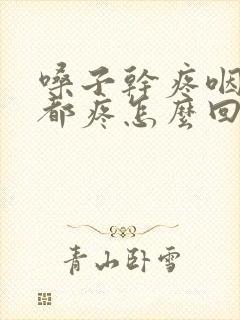 嗓子幹疼咽
都疼怎麼回
青山卧雪